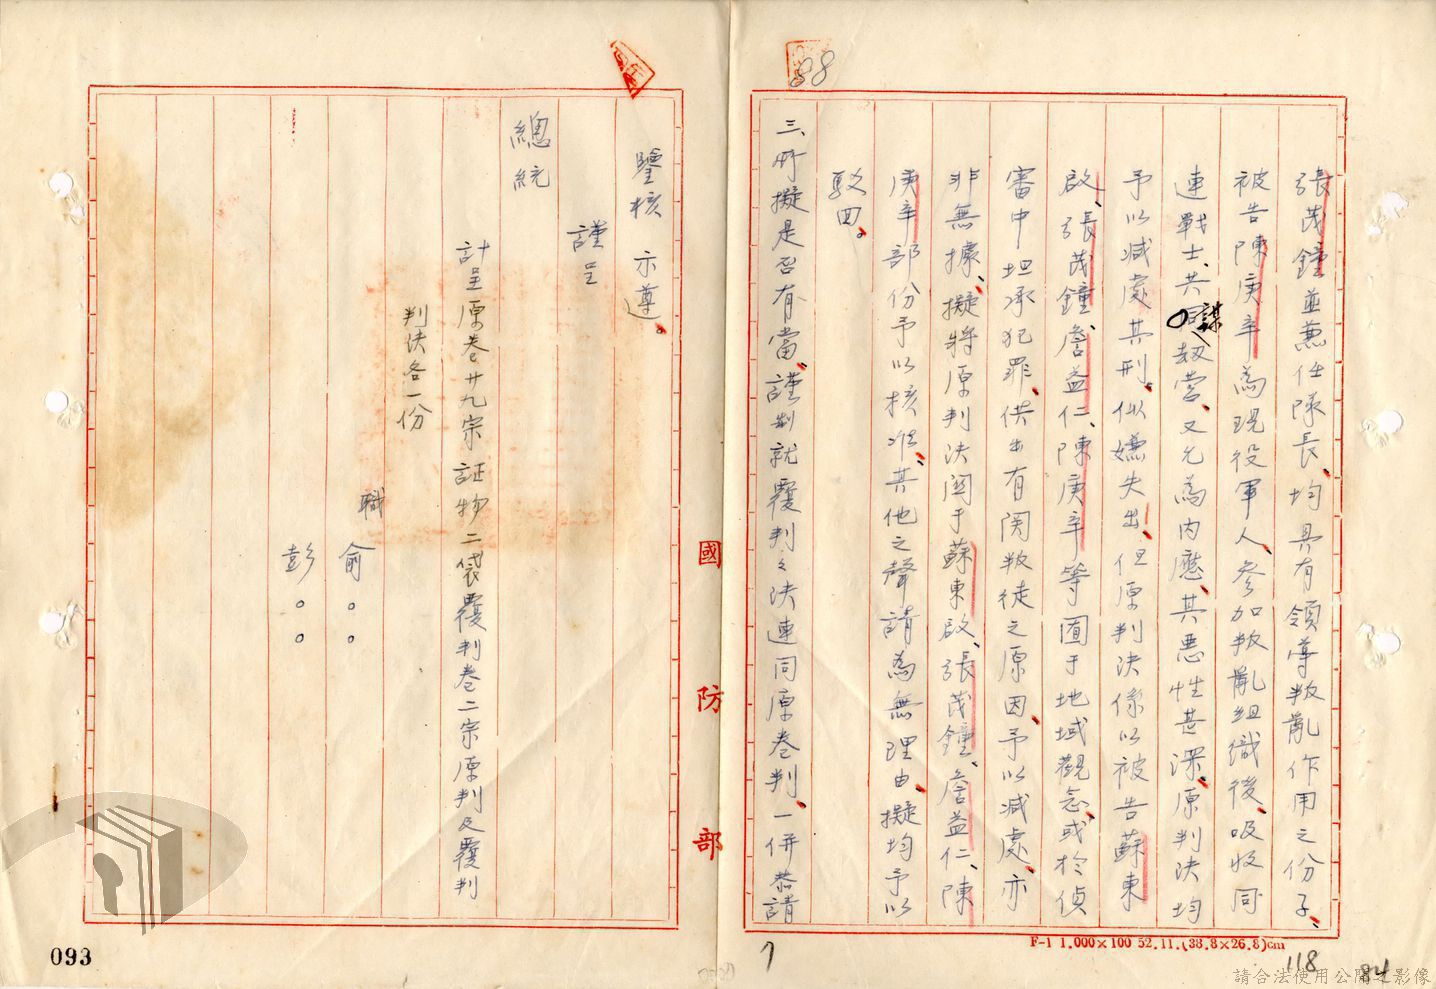 張茂鐘並兼任隊長、均具有領導叛亂作用之份子、
被告陳庚辛為現役軍人、參加叛亂組織後、吸收同
連戰士、共謀劫營、又允為內應、其惡性甚深、原判決均
予以減處其刑、似嫌失出、但原判決係以被告蘇東
啟、張茂鐘、詹益仁、陳庚辛等囿于地域觀念或於偵
審中坦承犯罪、供出有関叛徒之原因、予以減處、亦
非無據、擬將原判決関于蘇東啟、張茂鐘、詹益仁、陳
庚辛部份予以核准、其他之聲請為無理由、擬均予以
駁回。
三、所擬是否有當、謹制就覆判之決連同原卷判、一併恭請
鑒核 示遵。
謹呈
總統
計呈原卷廿九宗証物二袋覆判卷二宗原判及覆判
判決各一份
職 俞。。
彭。。
國防部
88
F-1 1.000×100 52.11.(38.8×26.8)cm
7
118
84
093
請合法使用公開之影像